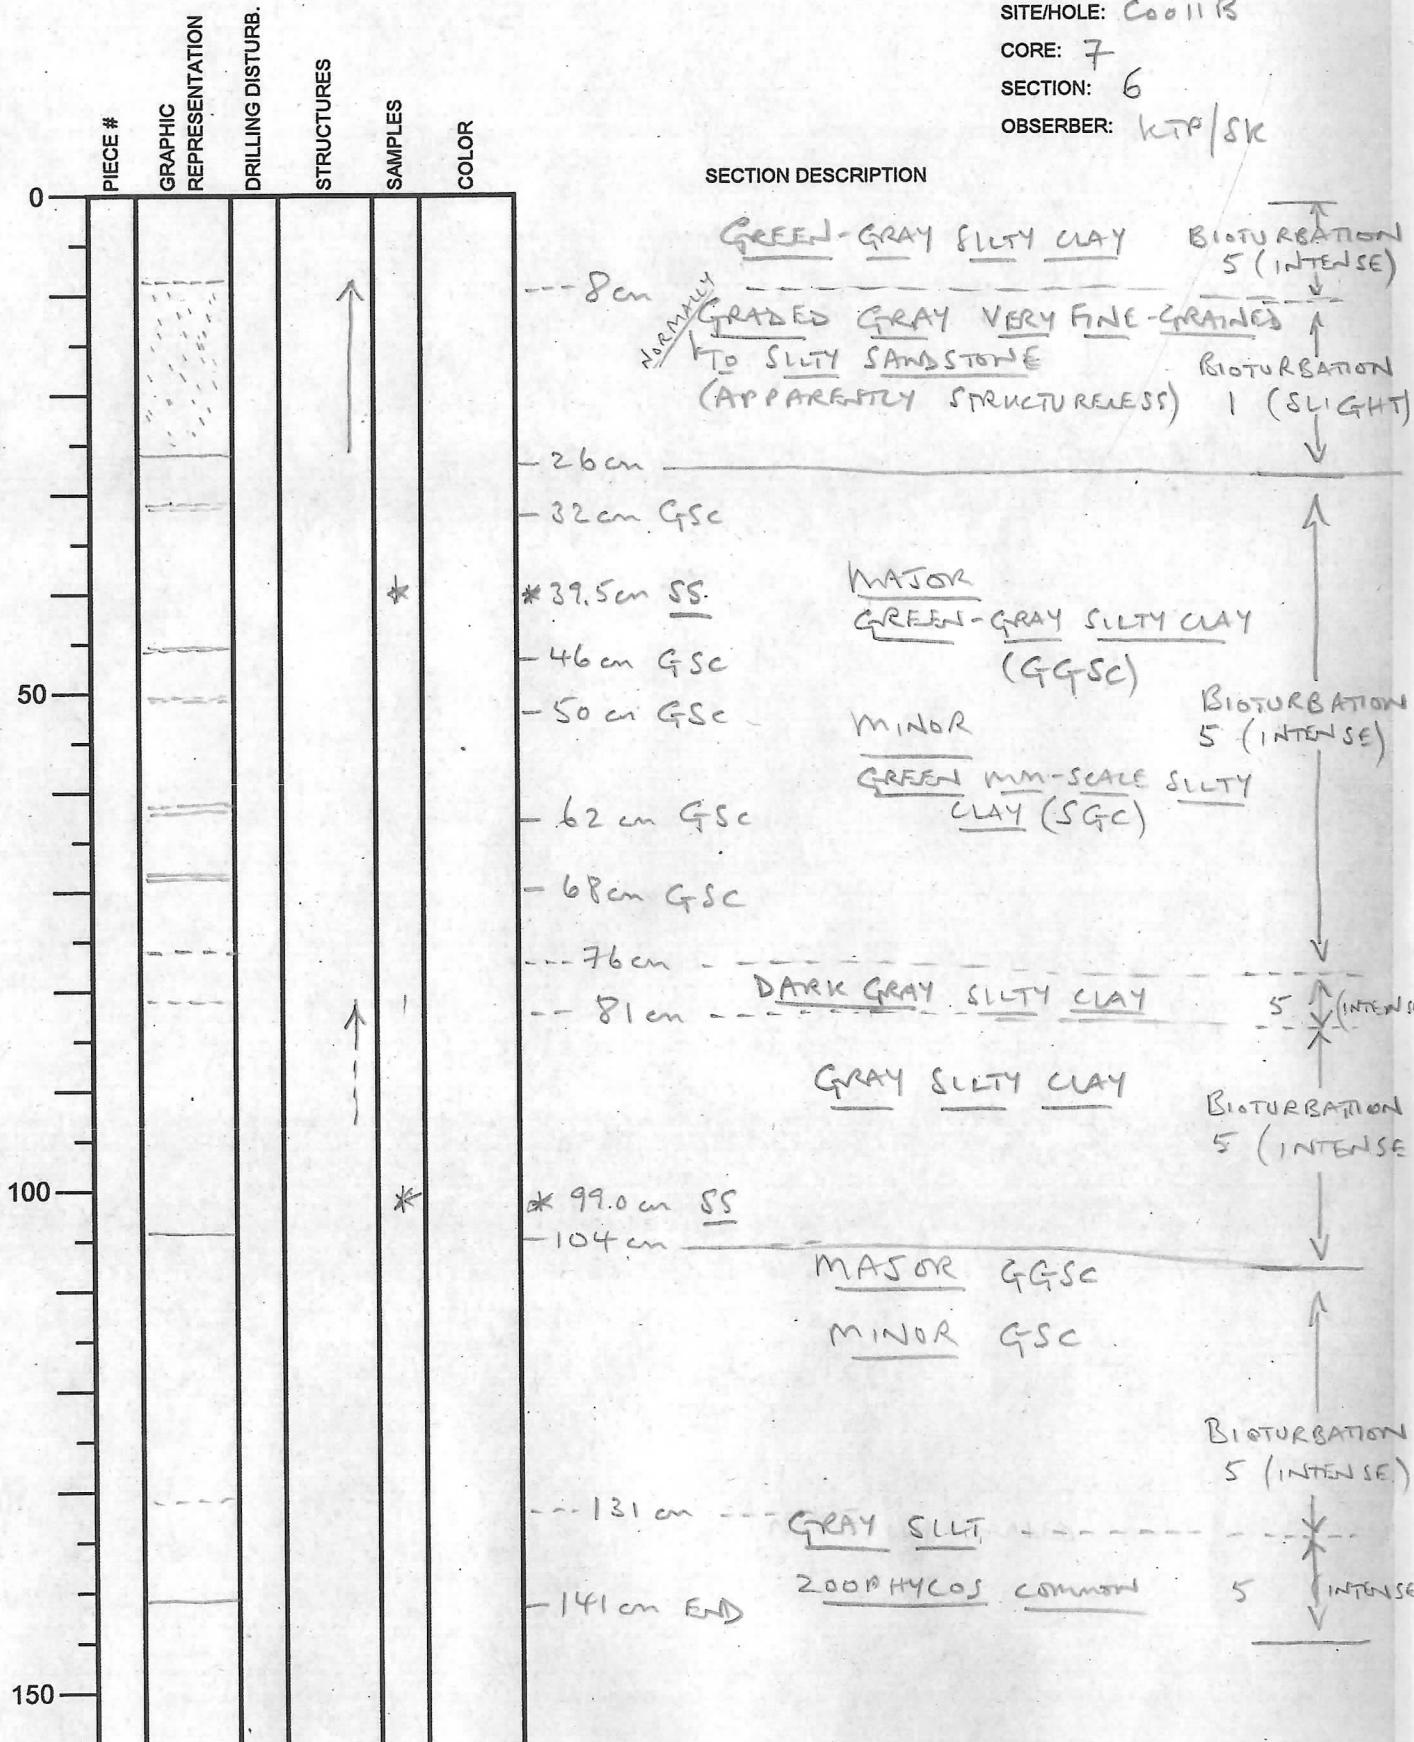 SITE/HOLE: C0011B
CORE: 7
SECTION: 6
OBSERBER: KTP/SK
PIECE #
GRAPHIC
REPRESENTATION
DRILLING DISTURB.
STRUCTURES
SAMPLES
COLOR
SECTION DESCRIPTION
0
GREEN-GRAY SILTY CLAY
BIOTURBATION
5 (INTENSE)
--- 8cm
NORMALLY
GRADED GRAY VERY FINE-GRAINED
TO SILTY SANDSTONE
(APPARENTLY STRUCTURELESS)
BIOTURBATION
1 (SLIGHT)
- 26cm
- 32cm GSC
* 39.5cm SS.
MAJOR
GREEN-GRAY SILTY CLAY
(GGSC)
- 46cm GSC
50
- 50cm GSC
MINOR
GREEN MM-SCALE SILTY
CLAY (SGC)
BIOTURBATION
5 (INTENSE)
- 62cm GSC
- 68cm GSC
--- 76cm
DARK GRAY SILTY CLAY
5 (INTENSE
-- 81cm
GRAY SILTY CLAY
BIOTURBATION
5 (INTENSE
100
* 99.0cm SS
- 104cm
MAJOR GGSC
MINOR GSC
BIOTURBATION
5 (INTENSE)
--- 131cm
GRAY SILT
ZOOPHYCOS COMMON
5 INTENSE
- 141cm END
150